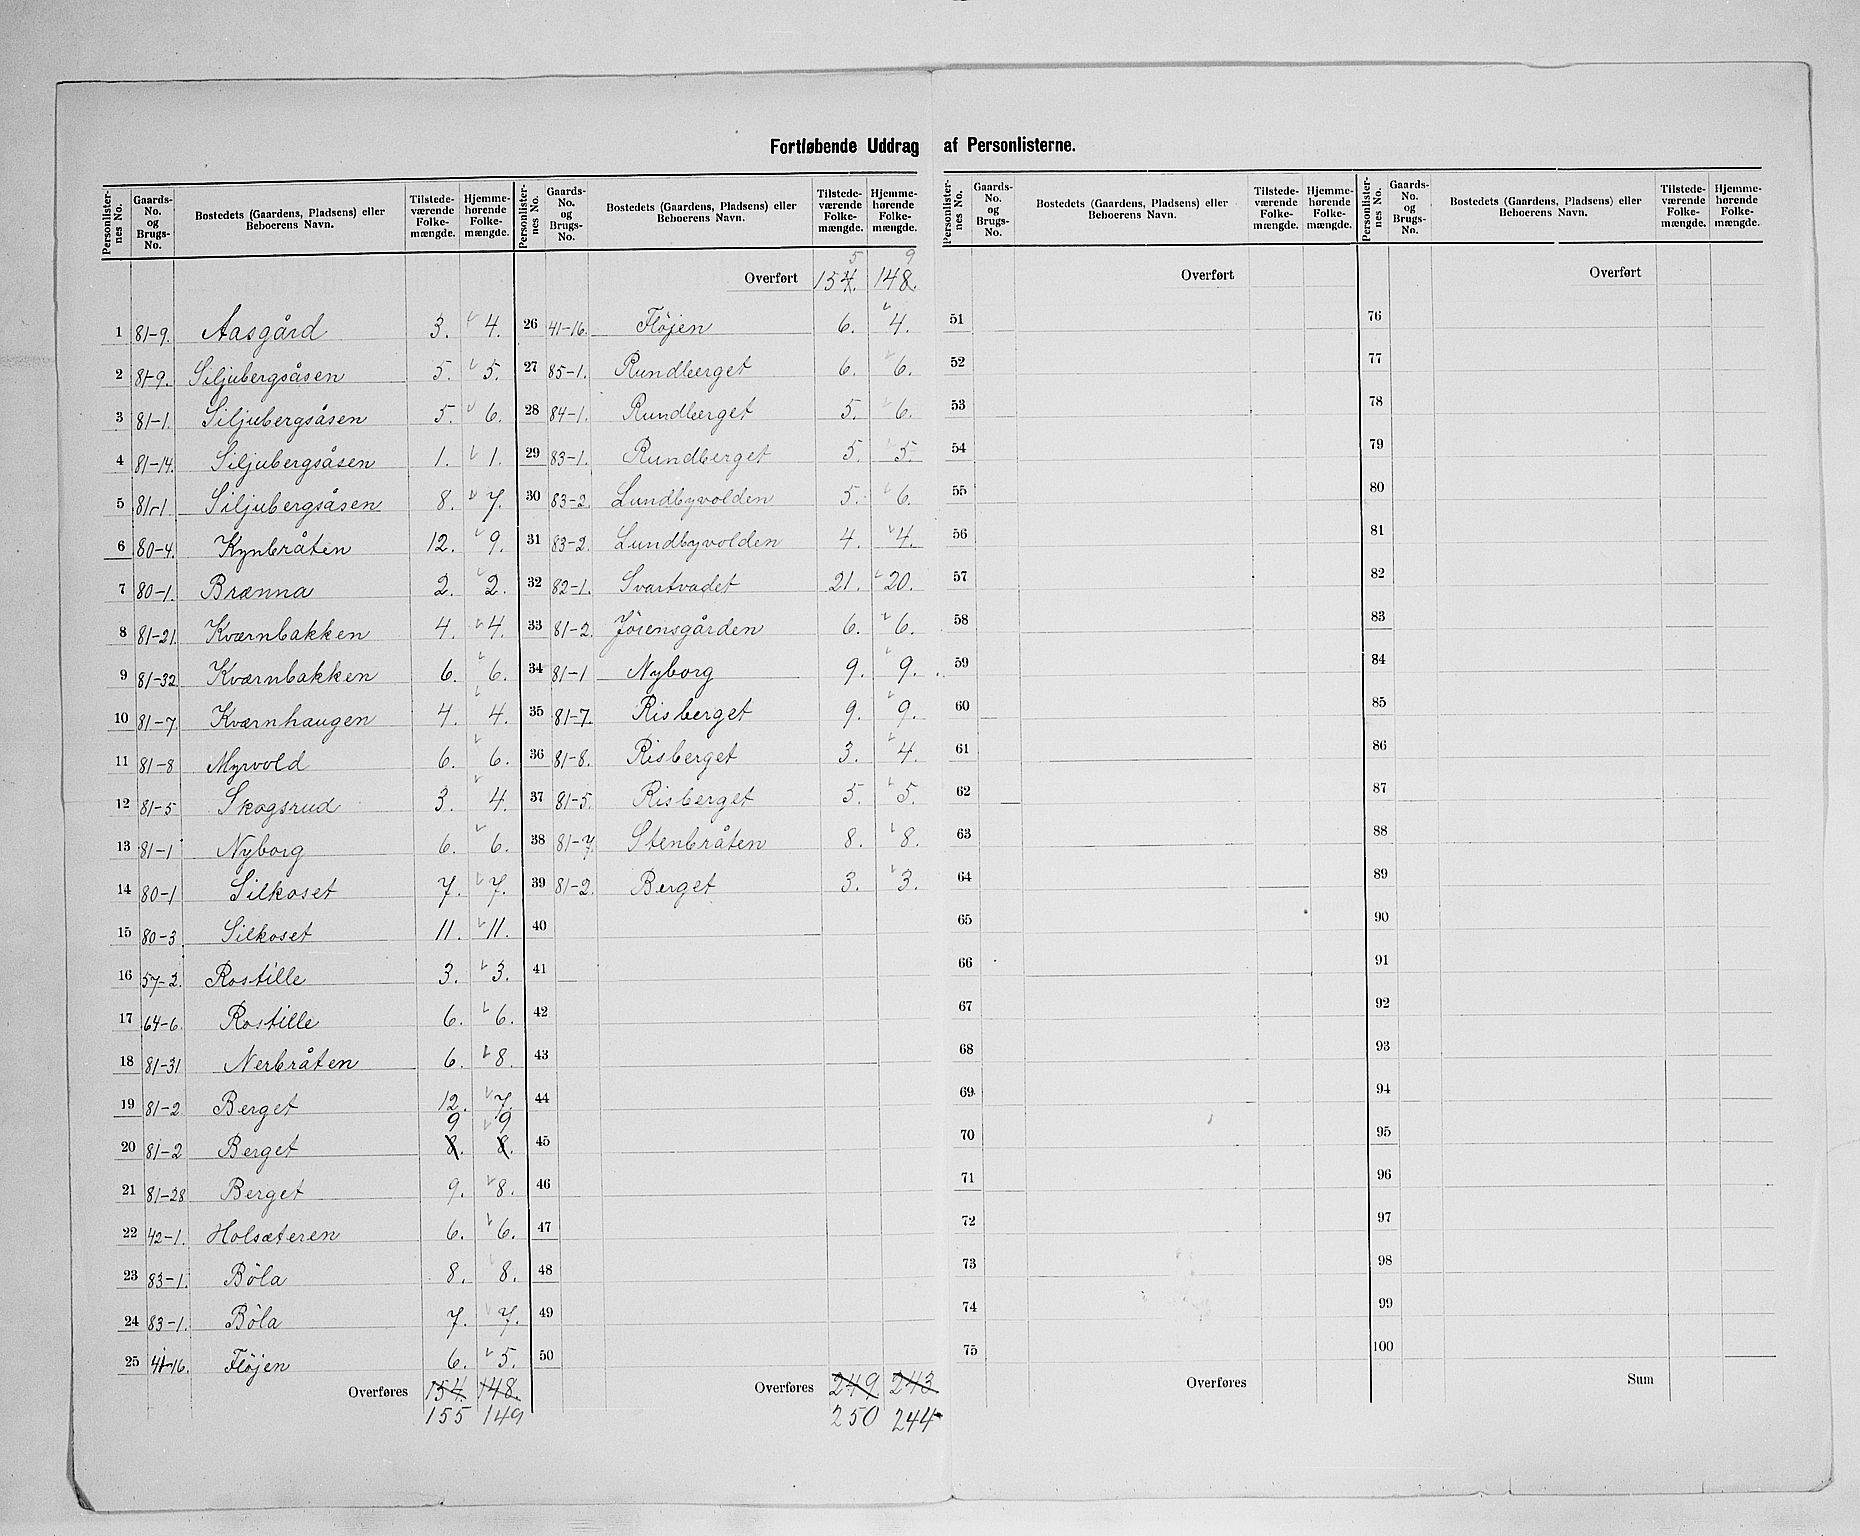 Fortløbende Uddrag af Personlisterne.
Personlister-nes No. | Gaards-No. og Brugs-No. | Bostedets (Gaardens, Pladsens) eller Beboerens Navn. | Tilstede-værende Folke-mængde. | Hjemme-hørende Folke-mængde.
1 81-9. Aasgård 3. 4.
2 81-9. Siljubergsåsen 5. 5.
3 81-1. Siljubergsåsen 5. 6.
4 81-14. Siljubergsåsen 1. 1.
5 81-1. Siljubergsåsen 8. 7.
6 80-4. Kynbråten 12. 9.
7 80-1. Brænna 2. 2.
8 81-21. Kværnbakken 4. 4.
9 81-32. Kværnbakken 6. 6.
10 81-7. Kværnhaugen 4. 4.
11 81-8 Myrvold 6. 6.
12 81-5 Skogsrud 3. 4.
13 81-1 Nyborg 6. 6.
14 80-1 Silkoset 7. 7.
15 80-3 Silkoset 11. 11.
16 57-2. Rostille 3. 3.
17 64-6. Rostille 6. 6.
18 81-31 Nerbråten 6. 8.
19 81-2 Berget 12. 7.
9 9
20 81-2 Berget 8. 8.
21 81-28 Berget 9. 8.
22 42-1. Holsæteren 6. 6.
23 83-1. Böla 8. 8.
24 83-1. Böla 7. 7.
25 41-16. Fløjen 6. 5.
Overføres 154. 148.
155 149
Personlister-nes No. | Gaards-No. og Brugs-No. | Bostedets (Gaardens, Pladsens) eller Beboerens Navn. | Tilstede-værende Folke-mængde. | Hjemme-hørende Folke-mængde.
5 9
Overført 154. 148.
26 41-16. Fløjen 6. 4.
27 85-1. Rundberget 6. 6.
28 84-1. Rundberget 5. 6.
29 83-1. Rundberget 5. 5.
30 83-2. Lundbyvolden 5. 6.
31 83-2. Lundbyvolden 4. 4.
32 82-1. Svartvadet 21. 20.
33 81-2. Jöiensgården 6. 6.
34 81-1 Nyborg 9. 9.
35 81-7. Risberget 9. 9.
36 81-8. Risberget 3. 4.
37 81-5. Risberget 5. 5.
38 81-7. Stenbråten 8. 8.
39 81-2. Berget 3. 3.
40
41
42
43
44
45
46
47
48
49
50
Overføres 249 243
250 244
Personlister-nes No. | Gaards-No. og Brugs-No. | Bostedets (Gaardens, Pladsens) eller Beboerens Navn. | Tilstede-værende Folke-mængde. | Hjemme-hørende Folke-mængde.
Overført
51
52
53
54
55
56
57
58
59
60
61
62
63
64
65
66
67
68
69
70
71
72
73
74
75
Overføres
Personlister-nes No. | Gaards-No. og Brugs-No. | Bostedets (Gaardens, Pladsens) eller Beboerens Navn. | Tilstede-værende Folke-mængde. | Hjemme-hørende Folke-mængde.
Overført
76
77
78
79
80
81
82
83
84
85
86
87
88
89
90
91
92
93
94
95
96
97
98
99
100
Sum